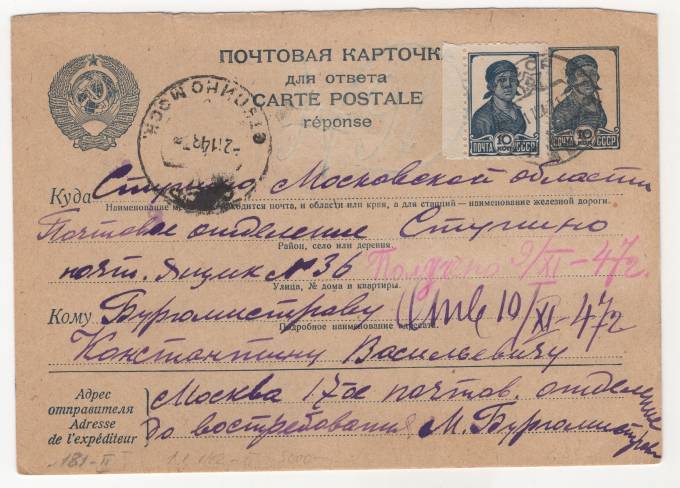 ПОЧТОВАЯ КАРТОЧКА
для ответа
CARTE POSTALE
réponse
10 10
ПОЧТА СССР ПОЧТА СССР
СТУПИНО МОСК.
Куда Ступино Московской области
Наименование места, где находится почта, и области или края, а для станций — наименование железной дороги.
Почтовое отделение Ступино
Район, село или деревня.
почт. ящик № 36 Получено 9/XI-47г.
Улица, № дома и квартиры.
Кому Бургомистрову 10/XI-47г
Подробное наименование адресата.
Константину Васильевичу
Адрес отправителя
Adresse de l'expéditeur
Москва 17ое почтов. отделение
До востребования, М. Бургомистрова